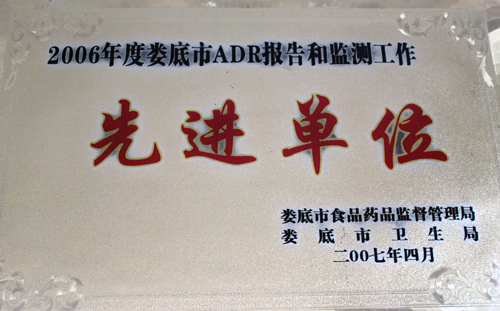 2006年度娄底市ADR报告和监测工作
先进单位
娄底市食品药品监督管理局
娄底市卫生局
二00七年四月